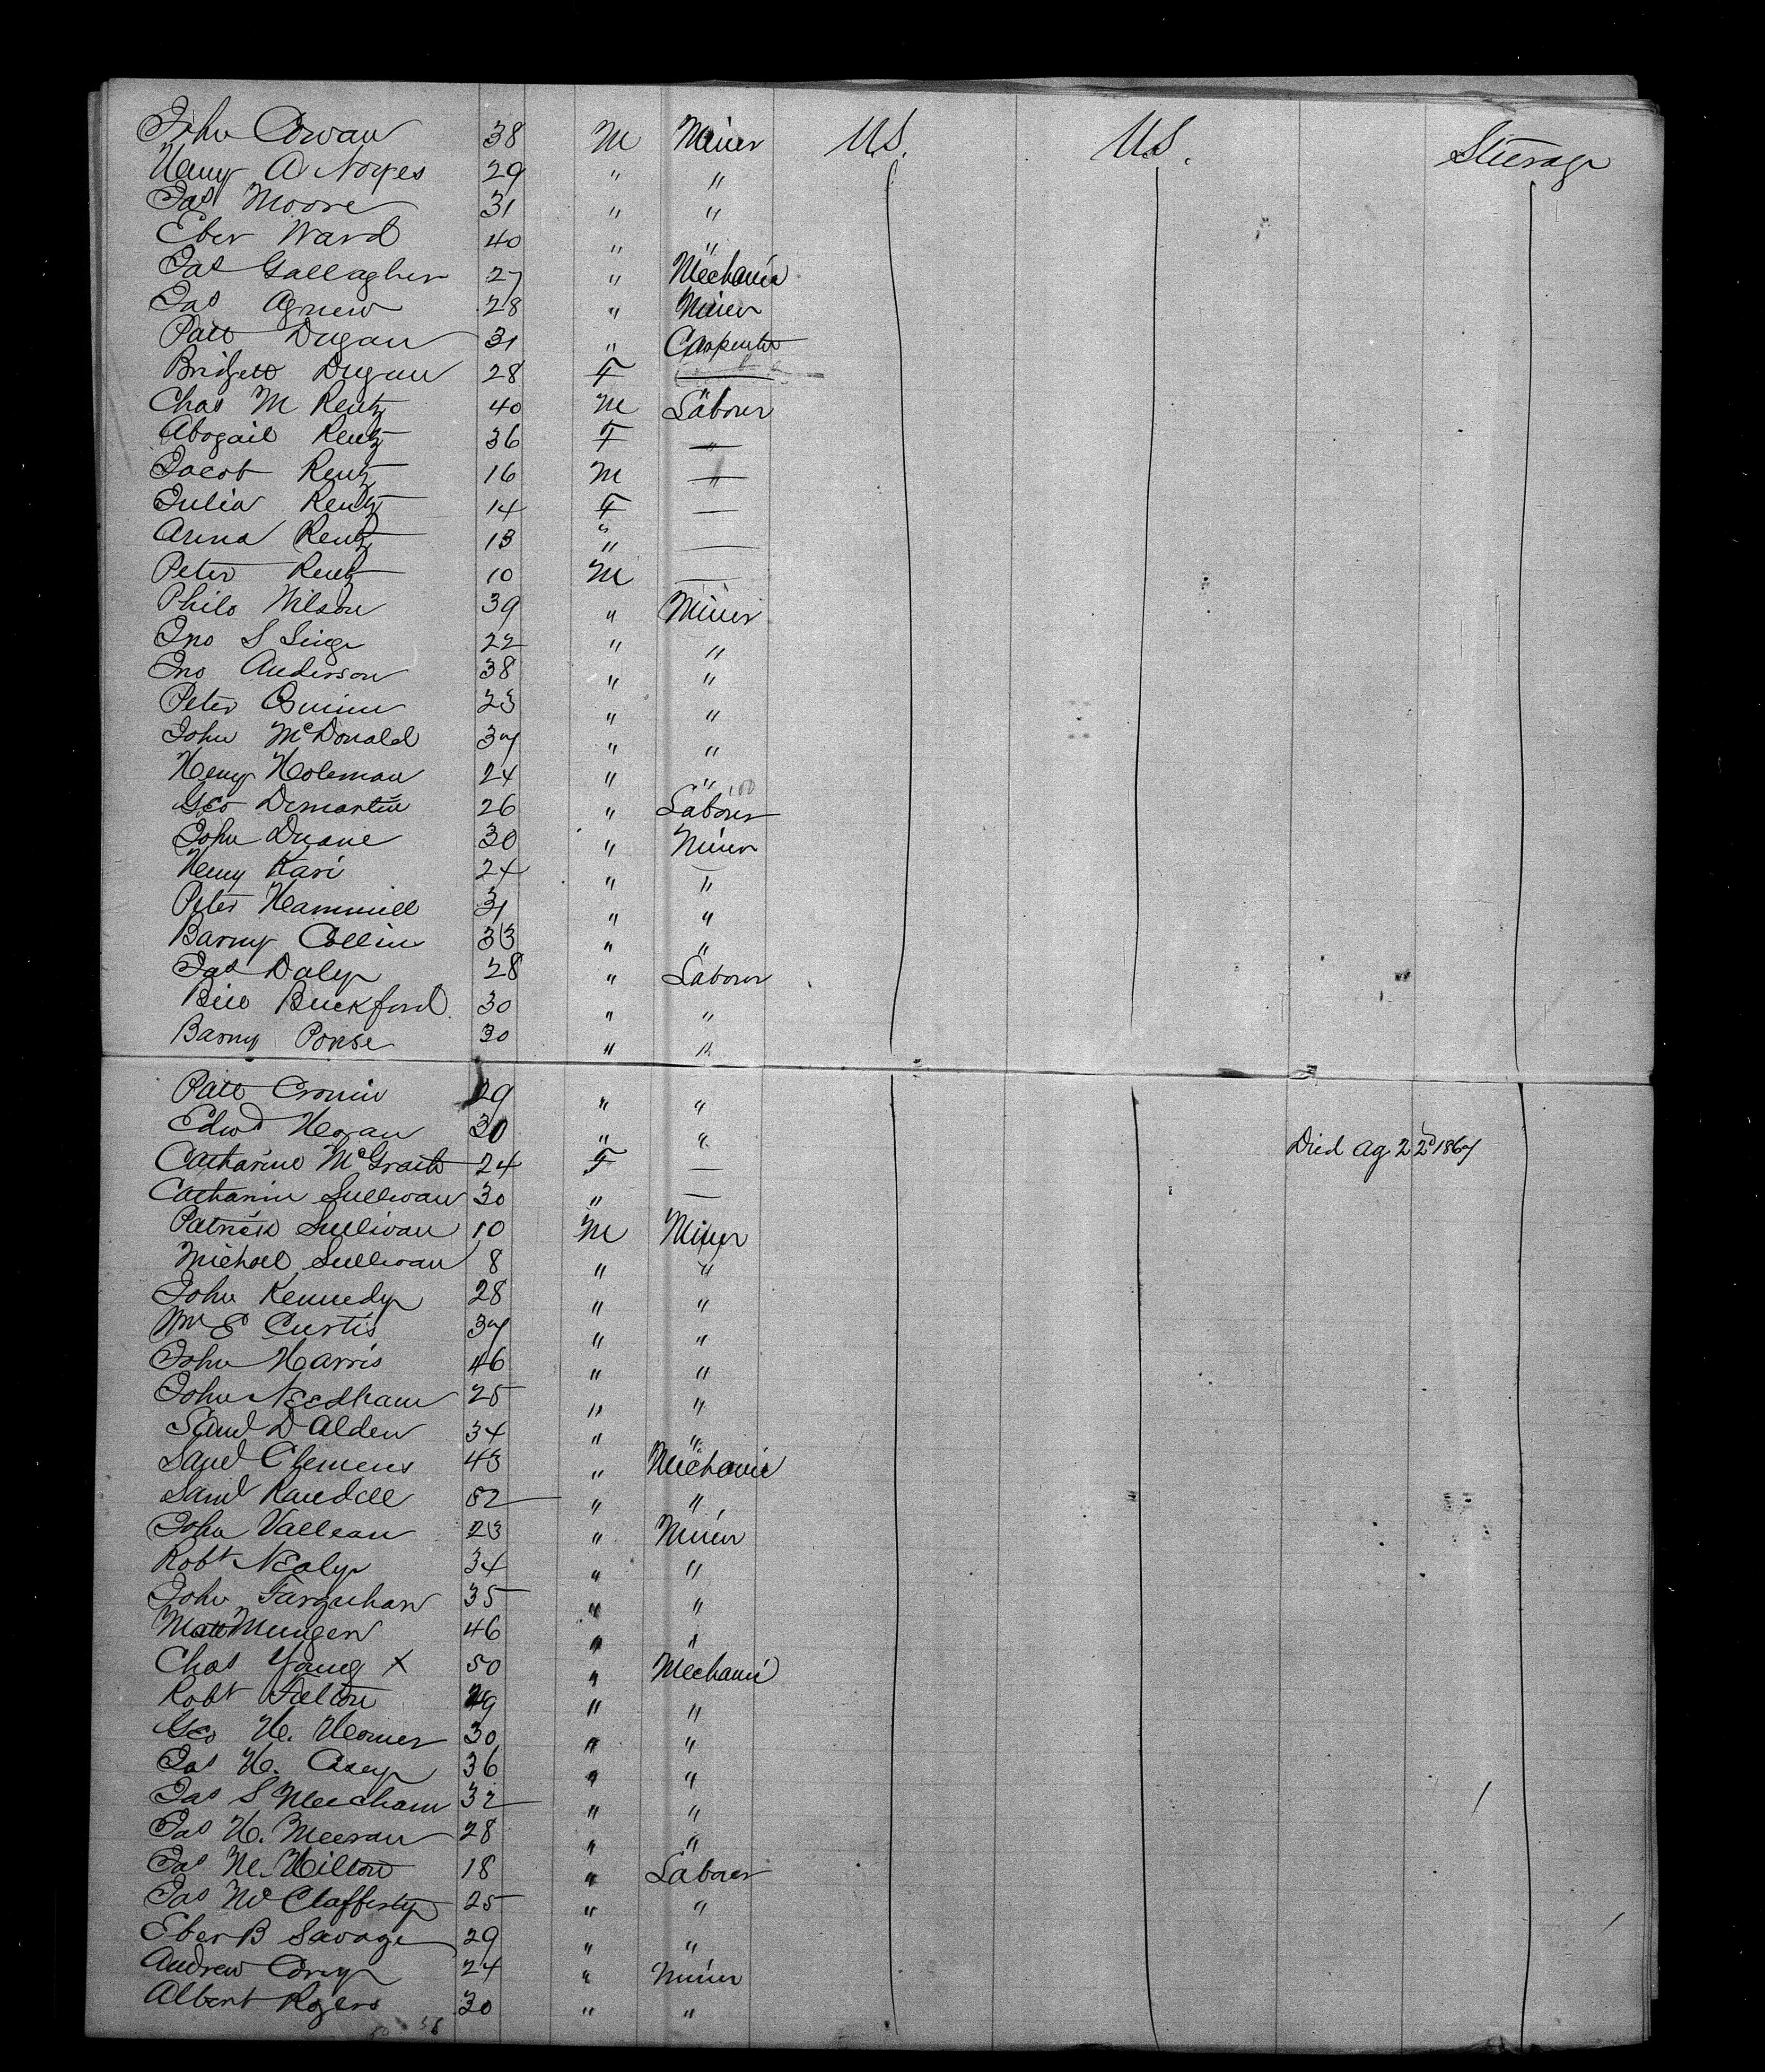 John Cowan 38 M Miner U.S. U.S. Steerage
Henry A Noyes 29 " "
Jas Moore 31 " "
Eber Ward 40 " "
Jas Gallagher 27 " Mechanic
Jas Agnew 28 " Miner
Patk Dugan 31 " Carpenter
Bridget Dugan 28 F —
Chas M Rentz 40 M Laborer
Abogail Rentz 36 F —
Jacob Rentz 16 M —
Julia Rentz 14 F —
Anna Rentz 13 " —
Peter Rentz 10 M —
Philo Wilson 39 " Miner
Jno S 22 " "
Jno Anderson 38 " "
Peter Quinn 23 " "
John McDonald 37 " "
Henry Holeman 24 " "
Geo Demartin 26 " Laborer
John Duane 30 " Miner
Henry Kari 24 " "
Peter Hammill 31 " "
Barny Collin 33 " "
Jas Daly 28 " Laborer
Bill Buckford 30 " "
Barny 30 " "
Patk Cronin 29 " "
Edwd Hogan 30 " "
Catharine McGrath 24 F — Died Ag 22d 1867
Catharine Sullivan 30 " —
Patrick Sullivan 10 M Miner
Michael Sullivan 8 " "
John Kennedy 28 " "
Wm E Curtis 37 " "
John Harris 46 " "
John Needham 25 " "
Saml D Alden 34 " "
Saml Clemens 43 " Mechanic
Saml Randall 52 " "
John Vallean 23 " Miner
Robt Nealy 34 " "
John Farquhar 35 " "
Matt Munger 46 " "
Chas Young X 50 " Mechanic
Robt Felton 29 " "
Geo H. Homer 30 " "
Jas H. Casey 36 " "
Jas S Meecham 32 " "
Jas H. Meeran 28 " "
Jas M. Hilton 18 " Laborer
Jas McClafferty 25 " "
Eber B Savage 29 " "
Andrew Corry 24 " Miner
Albert Rogers 30 " "